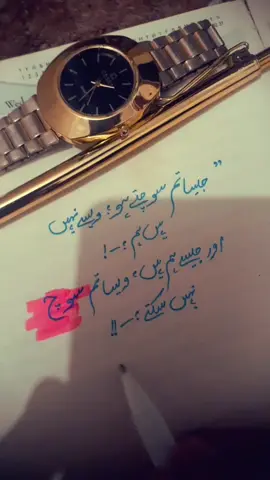 "جیسا تم سوچتے ہو؛ ویسے نہیں
ہیں ہم ؛ -!
اور جیسے ہم ہیں؛ ویسا تم سوچ
نہیں سکتے ؛ -!!